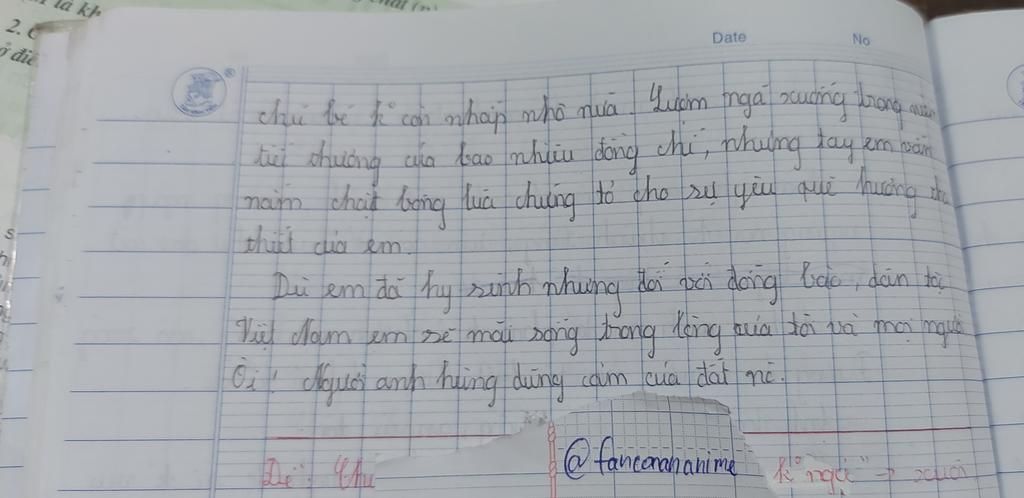 là kh
2. C
ở điể
Date No
chú bé k còn nhấp nhô nữa. Lượm ngã xuống trong
tiếc thương của bao nhiêu đồng chí, nhưng tay em vẫn
nắm chặt bông lúa chứng tỏ cho sự yêu quê hương
thiết của em.
Dù em đã hy sinh nhưng đối với đồng bào, dân tộc
Việt Nam em sẽ mãi sống trong lòng của tôi và mọi người
Ôi! Người anh hùng dũng cảm của đất nc.
@fanconananime
Đề: Thu k "ngủ" →